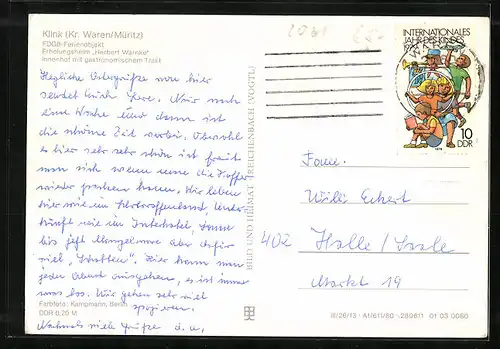 Klink (Kr. Waren/Müritz)
FDGB-Ferienobjekt
Erholungsheim „Herbert Warnke"
Innenhof mit gastronomischem Trakt
Herzliche Ostergrüße von hier
sendet Euch. Nur noch
eine Woche und dann ist
die schöne Zeit vorbei. Obwohl
es hier sehr sehr schön ist freut
man sich wenn man die Koffer
wieder packen kann. Wir leben
hier wie im Schlaraffenland, Unter-
künfte wie im Interhotel, Sonne
bis jetzt Mangelware aber dafür
viel „Schatten". Hier kann man
jeden Abend ausgehen, es ist immer
was los. Wir gehen sehr viel
spazieren.
Nochmals viele Grüße d. u.
Farbfoto: Kampmann, Berlin
DDR 0,20 M
BILD UND HEIMAT REICHENBACH (VOGTL)
INTERNATIONALES
JAHR DES KINDES
10
DDR
1979
Fam.
Willi Eckert
402 Halle/Saale
Markt 19
III/26/13 · A1/611/80 · 280611 01 03 0060